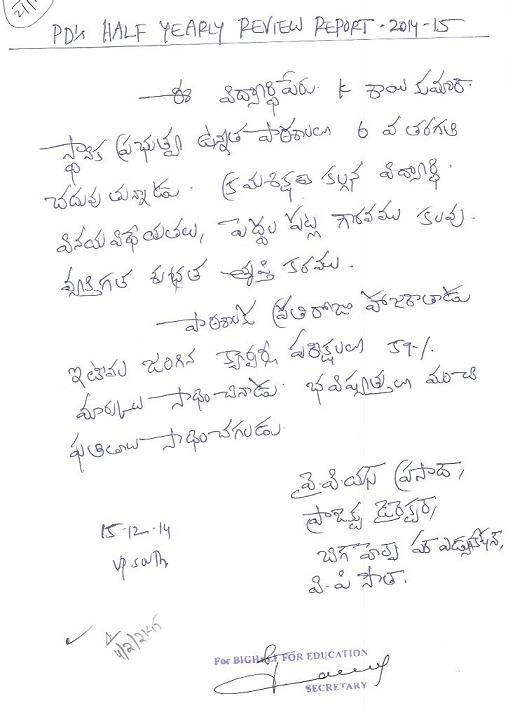 PD's HALF YEARLY REVIEW REPORT - 2014-15
ఈ విద్యార్థి పేరు. K సాయి కుమార్.
స్థానిక ప్రభుత్వ ఉన్నత పాఠశాలలో 6 వ తరగతి
చదువుతున్నాడు. క్రమశిక్షణ కల్గిన విద్యార్థి.
వినయ విధేయతలు, పెద్దల పట్ల గౌరవము కలవు.
వ్యక్తిగత శుభ్రత తృప్తి కరము.
పాఠశాలకు ప్రతిరోజు హాజరౌతాడు
ఇటీవల జరిగిన క్వార్టర్లీ పరీక్షలలో
మార్కులు సాధించినాడు. భవిష్యత్తులో మంచి
ఫలితాలు సాధించగలడు.
వై.వి.యస్ ప్రసాద్,
ప్రాజెక్టు డైరెక్టర్,
బిగ్ హెల్ప్ ఫర్ ఎడ్యుకేషన్,
వి.పి సౌత్.
15-12-14
VP South
4/2/2145
For BIGHELP FOR EDUCATION
SECRETARY